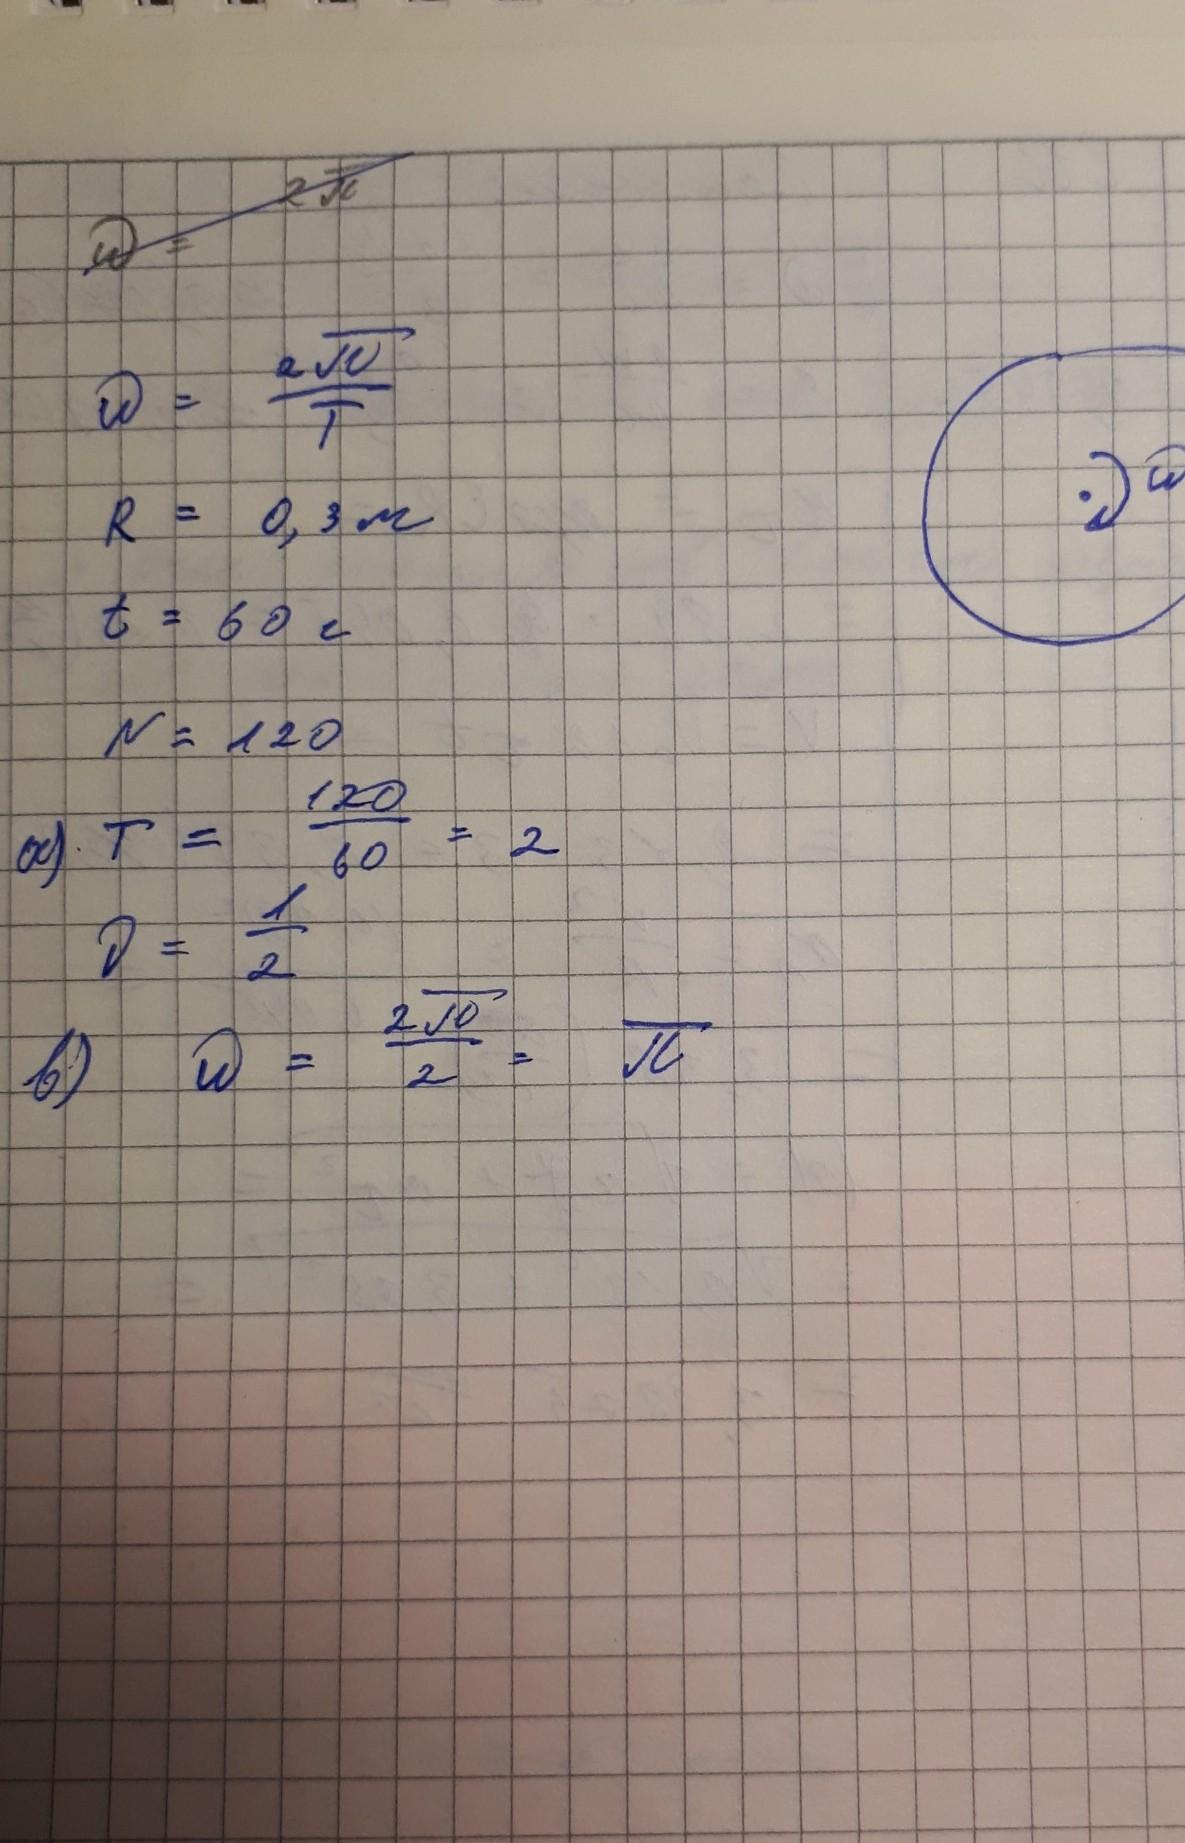 ω = 2π
ω = 2π/T
R = 0,3 м
t = 60 с
ω
N = 120
а) T = 120/60 = 2
ν = 1/2
в) ω = 2π/2 = π